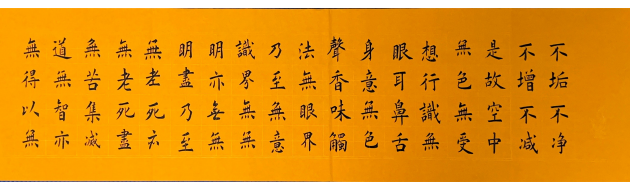 不垢不净
不增不减
是故空中
無色無受
想行識無
眼耳鼻舌
身意無色
聲香味觸
法無眼界
乃至無意
識界無無
明亦無無
明盡乃至
無老死亦
無老死盡
無苦集滅
道無智亦
無得以無